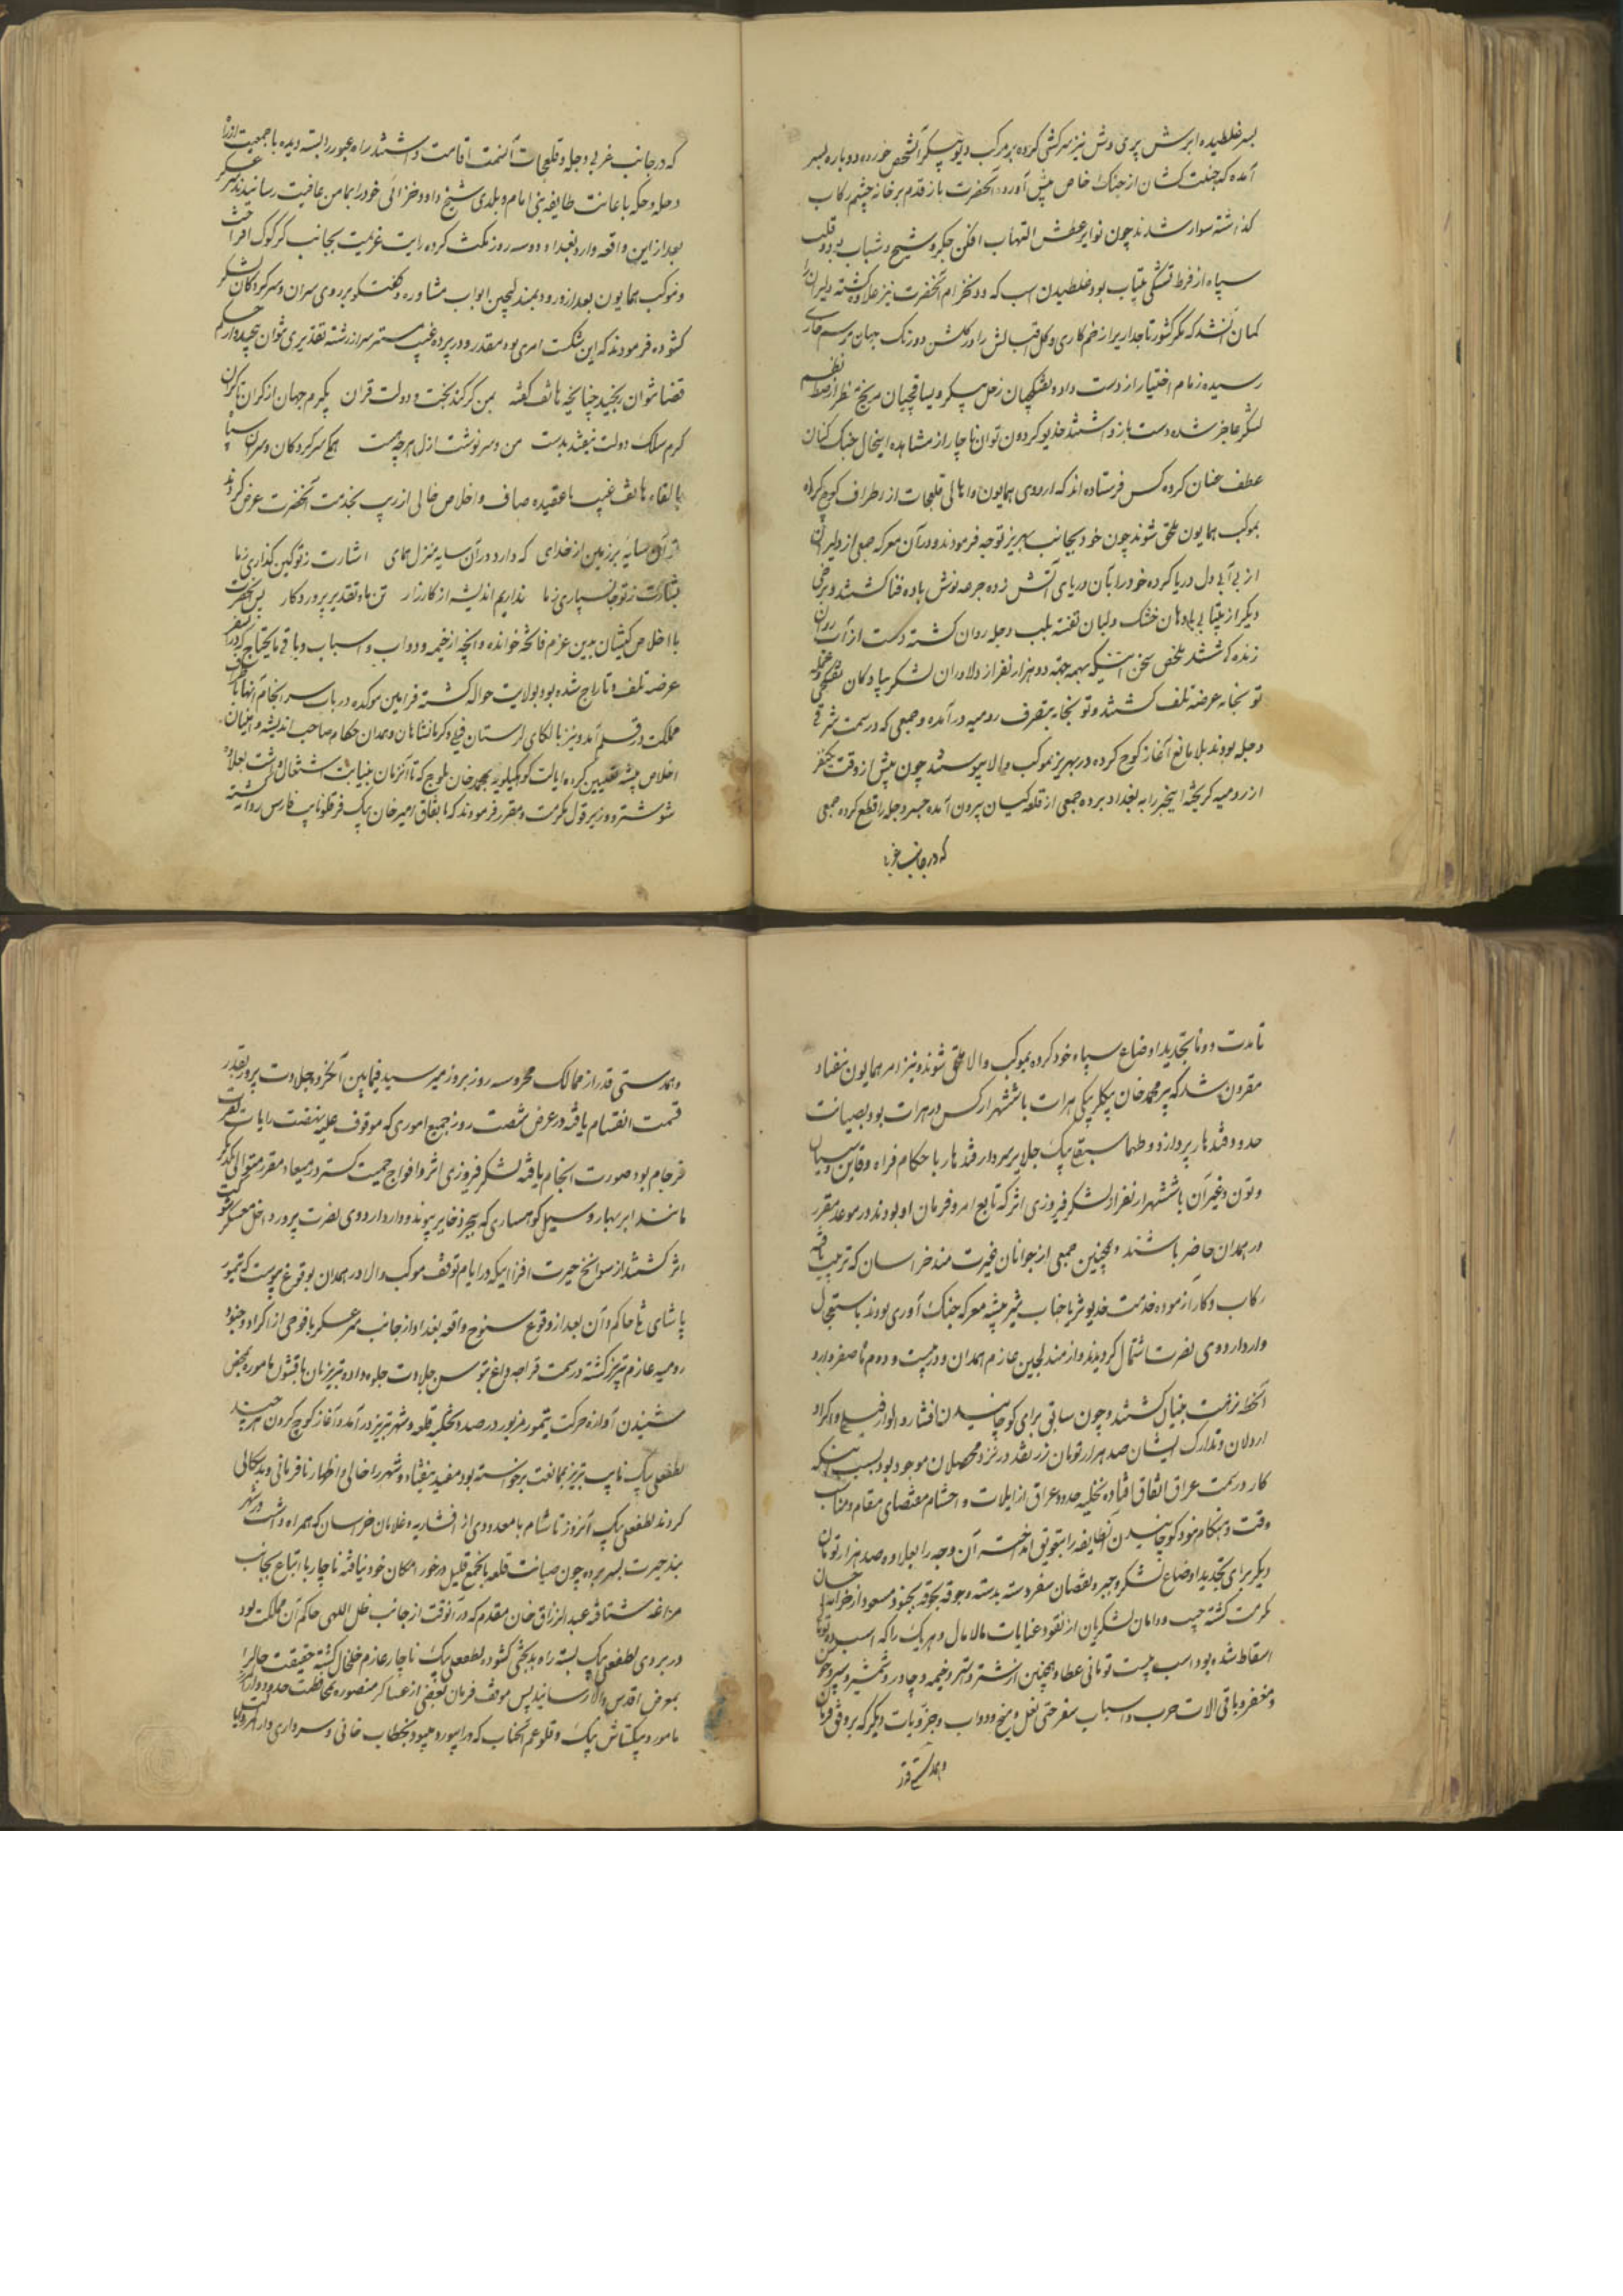 بسر غلطیده ابرش پری وش نیز سرکشی کرده بر مرکب دیو پیکر آن شخص خورده دوباره بسر
آمده که جنیبت کشان از جنک خاص پیش آورده آنحضرت باز قدم بر خانه چشم رکاب
کذاشته سوار شدند چون نوایر عطش التهاب افکن جکر شیخ و شباب بود و قلب
سپاه از فرط تشنکی بیتاب بود غلطیدن اسب که دو نظر ام آنحضرت نیز علاوه کشته دلیران را
کمان آن شد که مکر کشور تاجداریرا زخم کاری و کل اقبالش را در کلشن دو رنک جهان خاری
رسیده زمام اختیار از دست داده و تفنکچیان زحل پیکر و یساقچیان مریخ نظر از ضبط نظم
لشکر عاجز شده دست باز داشتند خدیو کردون توان ناچار از مشاهده اینحال جنک کنان
عطف عنان کرده کس فرستاده اند که اردوی همایون و اهالی قلعجات از اطراف کوچ کرده
بموکب همایون ملحق شوند چون خود بجانب بهریز توجه فرمودند و در آن معرکه جمعی از دلیران
از بی آبی دل دریا کرده خود را بآن دریای آتش زده جرعه نوش باده فنا کشتند و برخی
دیکر از بیتابی با دهان خشک و لبان تفته بلب دجله روان کشته دست از آب روان
زنده کشتند ملخص سخن اینکه بهمه جهة دو هزار نفر از دلاوران لشکر پیادکان تفنکچی و عمله
توپخانه عرضه تلف کشتند و توپخانه بتصرف رومیه در آمده و جمعی که در سمت شرقی
دجله بودند بلا مانع آغاز کوچ کرده در بهریز بموکب والا پیوستند چون پیش از وقت یکنفر
از رومیه کریخته اینخبر را به بغداد برده جمعی از قلعه کیان بیرون آمده جسر دجله را قطع کرده جمعی
که در جانب غربی
که در جانب غربی دجله و قلعجات آنسمت اقامت داشتند راه عبور را بسته دیده با جمعیت از راه
دجله و حله باعانت طایفه بنی لام و بلدی شیخ داود خزاعی خود را بمامن عافیت رسانیدند سر عسکر
بعد از این واقعه وارد بغداد و دو سه روز مکث کرده رایت عزیمت بجانب کرکوک افراخت
و موکب همایون بعد از ورود بمندلیجین ابواب مشاوره و کفتکو بر روی سران و سرکردکان لشکر
کشوده فرمودند که این شکست امری بوده مقدر و در پرده غیب مستتر سر از رشته تقدیری نتوان پیچید و از حکم
قضا نتوان رنجید چنانچه هاتف کفته بمن کر کند بخت و دولت قران بکیرم جهان از کران تا کران
کرم سلک دولت نیفتد بدست من و سرنوشت ازل هر چه هست همکی سرکردکان و سران سپاه
بالقاء هاتف غیب با عقیده صاف و اخلاص خالی از ریب بخدمت آنحضرت عرض کردند
توئی سایه بر زمین از خدای که دارد در آن سایه منزل همای اشارت ز تو کین کذاری ز ما
بشارت ز تو جانسپاری ز ما نداریم اندیشه از کارزار تن ما و تقدیر پروردکار پس آنحضرت
با اخلاص کیشان بدین عزم فاتحه خوانده و آنچه از خیمه و دواب و اسباب و باقی ما یحتاج که در آن سفر
عرضه تلف و تاراج شده بود بولایت حواله کشته فرامین موکده در باب سرانجام آنها باطراف
مملکت در قلم آمد و نیز بالکای لرستان فیلی و کرمانشاهان و همدان حکام صاحب اندیشه و اعیان
اخلاص پیشه تعیین کرده ایالت کوهکیلویه بمحمد خان بلوچ که تا آنزمان به نیابت اشتغال داشت بعلاوه
شوشتر و دزفول مکرمت و مقرر فرمودند که باتفاق امیر خان بیک قرقلو نایب فارس روانه کشته
تا مدت دو ماه تجدید اوضاع سپاه خود کرده بموکب والا ملحق شوند و نیز امر همایون بنفاد
مقرون شد که پیر محمد خان بیکلر بیکی هرات با ششهزار کس در هرات بوده بصیانت
حدود قندهار پردازد و طهماسبقلی بیک جلایر سردار قندهار با حکام فراه و قاین و سیستان
و تون و غیر آن با ششهزار نفر از لشکر فیروزی اثر که تابع امر و فرمان او بودند در موعد مقرر
در همدان حاضر باشند و همچنین جمعی از جوانان غیرت مند خراسان که تربیت یافته
رکاب و کار آزموده خدمت خدیو ثریا جناب شیر بیشه معرکه جنک آوری بودند باستعجال
وارد اردوی نصرت اشتمال کردیدند و از مندلیجین عازم همدان و در بیست و دوم ماه صفر وارد
آنخطه نزهت بنیان کشتند و چون سابق برای کوچانیدن افشار و الوار فیلی و اکراد
اردلان و تدارک ایشان صد هزار تومان زر نقد در نزد محصلان موجود بود بسبب اینکه
کار در سمت عراق اتفاق افتاده تخلیه حدود عراق از ایلات و احشام مقتضای مقام و مناسب
وقت و هنکام نبود کوچانیدن آنطایفه را بتعویق انداخته آن وجه را بعلاوه صد هزار تومان
دیکر برای تجدید اوضاع لشکر و جبر و نقصان سفر دسته بدسته و جوقه بجوقه بجنود مسعود از خزانه احسان
مکرمت کشته جیب و دامان لشکریان از نقود عنایات مالامال و هر یک را که اسب ده تومانی
اسقاط شده بود اسب بیست تومانی عطا و همچنین از شتر و استر و خیمه و چادر و شمشیر و سپر و جوشن
و مغفر و باقی الات حرب و اسباب سفر حتی نعل و میخ دواب و جزویات دیکر که بر وفق فرمان
و همدستی قدر
و همدستی قدر از ممالک محروسه روز بروز میرسید فیمابین آنکروه جلادت پرور بقدر
قسمت انقسام یافته در عرض شصت روز جمیع اموری که موقوف علیه نهضت رایات نصرت
فرجام بود صورت انجام یافته لشکر فیروزی اثر و افواج حمیت کستر در میعاد مقرر متوالی یکدیکر
مانند ابر بهار و سیل کوهساری که ببحر ذخایر پیوند وارد اردوی نصرت پرور داخل معسکر شوکت
اثر کشتند از سوانح حیرت افزا اینکه در ایام توقف موکب والا در همدان بوقوع پیوست که تیمور
پاشای حاکم وان بعد از وقوع سنوح واقعه بغداد از جانب سر عسکر با فوجی از اکراد و جنود
رومیه عازم تبریز کشته در سمت قراجه داغ توسن جلادت جلوه داده تبریزیان با قشون مامور بمحض
شنیدن آوازه حرکت تیمور مزبور در صدد تخلیه قلعه و شهر تبریز در آمده آغاز کوچ کردن هر چند
لطفعلی بیک نایب تبریز بممانعت برخواسته بود مفید نیفتاده شهر را خالی و اظهار نافرمانی و بدسکالی
کردند لطفعلی بیک آنروز تا شام با معدودی از افشاریه و غلامان خراسان که همراه داشت در شهر
بند حیرت بسر برده چون صیانت قلعه با جمع قلیل در خور امکان خود نیافته ناچار با اتباع بجانب
مراغه شتافته عبد الرزاق خان مقدم که در آنوقت از جانب ظل اللهی حاکم آن مملکت بود
در بروی لطفعلی بیک بسته راه بدبختی کشوده لطفعلی بیک ناچار عازم خلخال کشته حقیقت حال را
بمعرض اقدس والا رسانید پس موقف فرمان بعضی از عساکر منصوره بمحافظت حدود و اماکن
مامور و بیکتاش بیک قرقلو عم آنجناب که در ابیورد میبود بخطاب خانی و سرداری و ارکرتلیا